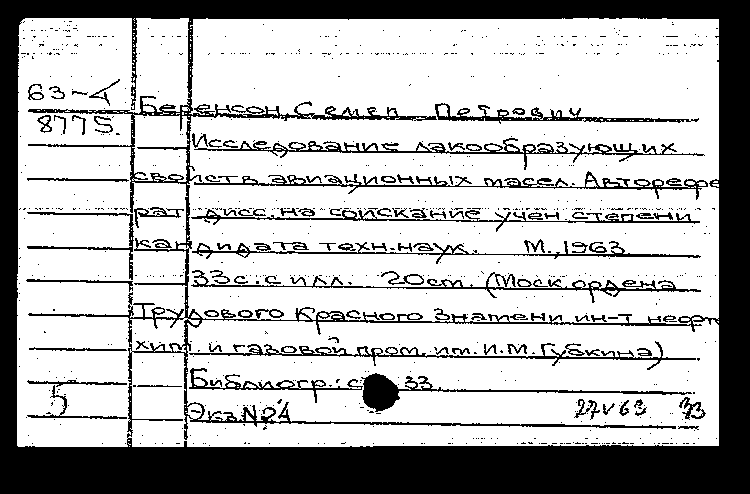 63-4
8775.
Беренсон, Семен Петрович
Исследование лакообразующих
свойств авиационных масел. Авторефе
рат дисс. на соискание учен степени
кандидата техн. наук. М., 1963
33с. с илл. 20см. (Моск. ордена
Трудового Красного Знамени ин-т нефте
хим. и газовой пром. им. И.М. Губкина)
Библиогр.: с 33.
5 Экз №24 27 V 63 33